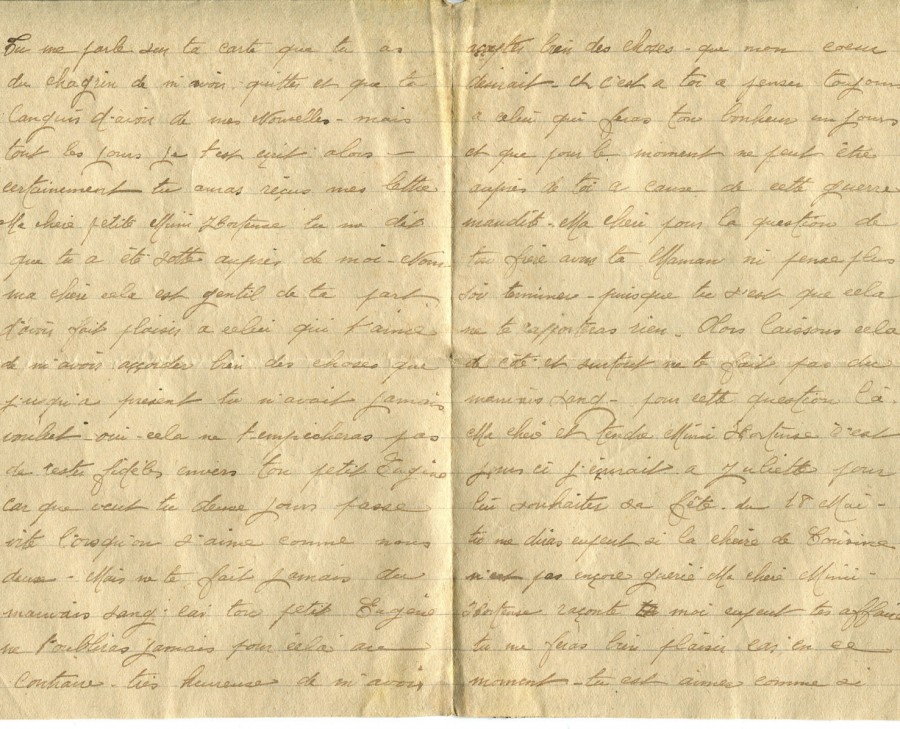 Tu me parle sur ta carte que tu as
du chagrin de m'avoir quittes et que tu
languis d'avoir de mes Nouvelles - mais
tout les jours je t'est ecrit alors -
certainement tu auras réçus mes lettre
Ma chere petite Mimi Hortense tu me dit
que tu a été sotte aupres de moi - Non
ma cheri cela est gentil de ta part
d'avoir fait plaisir a celui qui t'aime
de m'avoir accorder bien des choses que
jusqu'a present tu n'avait jamais
voulut oui cela ne t'empecheras pas
de rester fidèle envers ton petit Eugène
car que veut tu deux jours passe
vite l'orsqu'on s'aime comme nous
deux - Mais ne te fait jamais du
mauvais sang car ton petit Eugène
ne t'oublieras jamais pour cela au
contraire - très heureuse de m'avoir
accepter bien des choses - que mon coeur
desirait - Et c'est a toi a penser toujours
a celui qui feras ton bonheur un jours
et que pour le moment ne peut être
aupres de toi a cause de cette guerre
maudite - Ma cheri pour la question de
ton frère avec ta Maman ni pense plus
soi terminer - puisque tu s'est que cela
ne te rapporteras rien - Alors laissons cela
de côté et surtout ne te fait pas du
mauvais sang - pour cette question là -
Ma cheri et Tendre Mimi Hortense s'est
jours ci j'ecrirait a Juliette pour
lui souhaiter sa fête du 18 Mai -
tu me diras enfent si la cheire de Cousine
n'est pas encore guerie Ma chere Mimi -
Hortense raconte moi enfent tes affaire
tu me feras bien plaisir car en ce
moment - tu est aimer comme si